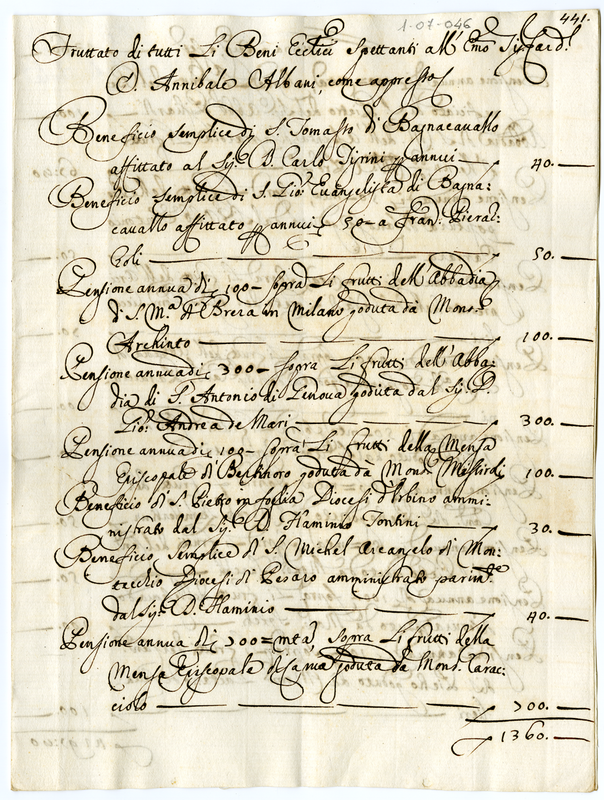 441.
1-07-046
Fruttato di tutti Li Beni Ecc.tici Spettanti all' Em͠o Sig. Card.l
D. Annibale Albani, come appresso
Beneficio semplice di S. Tomasso di Bagnacavallo
affittato al Sig. D. Carlo annui — 40. —
Beneficio semplice di S. Gio: Evangelista di Bagna:
cavallo affittato annui 50 — a Fran. Pieral:
— 50. —
Pensione annua di 100 — sopra Li frutti dell' Abbadia
di S. M.a di Brera in Milano goduta da Mons.r
Archinto — 100. —
Pensione annua di 300 — sopra Li frutti dell' Abba
dia di S. Antonio di Genova goduta dal Sig. D.
Gio: Andrea de Mari — 300. —
Pensione annua di 100 — sopra Li frutti della Mensa
Episcopale di goduta da Mons. 100. —
Beneficio di S. Pietro in foglia Diocesi d'Urbino ammi:
nistrato dal Sig. D. Flaminio — 30. —
Beneficio Semplice di S. Michel Arcangelo di Mon:
tecchio Diocesi di Pesaro amministrato parim.te
dal Sig. D. Flaminio — 40. —
Pensione annua di 700 = m.ta sopra Li frutti della
Mensa Episcopale di goduta da Mons. Carac:
ciolo — 700. —
1360. —